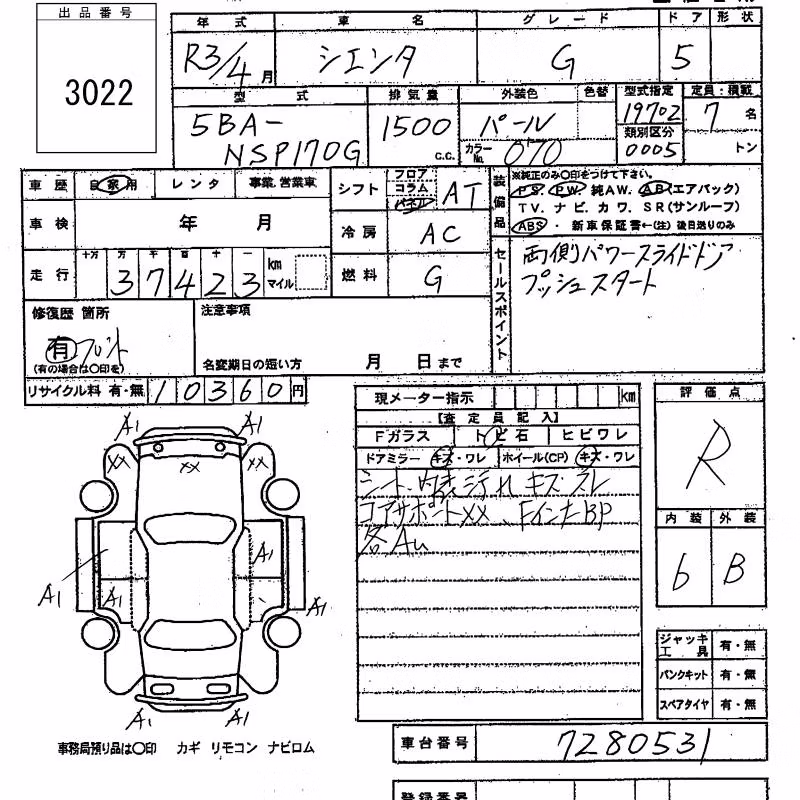 出品番号
3022
年式 車名 グレード ドア 形状
R3/4月 シエンタ G 5
型式 排気量 外装色 色替 型式指定 定員・積載
5BA-NSP170G 1500 C.C. パール カラーNo. 070 19702 類別区分 0005 7名 トン
車歴 自家用 レンタ 事業.営業車
シフト フロア コラム パネル AT
装備品 ※純正のみ〇印をつけて下さい。
PS PW 純AW. AB(エアバック)
TV. ナビ. カワ. SR(サンルーフ)
ABS ・ 新車保証書←(注) 後日送りのみ
車検 年 月
冷房 AC
走行 十万 万 千 百 十 一 km マイル
37423
燃料 G
セールスポイント
両側パワースライドドア
プッシュスタート
修復歴 箇所
有 フロント
(有の場合は〇印を)
注意事項
名変期日の短い方 月 日まで
リサイクル料 有・無 10360円
現メーター指示 km
【査定員記入】
Fガラス トビ石 ヒビワレ
ドアミラー キズ・ワレ ホイール(CP) キズ・ワレ
シート、内装汚れ キズ スレ
コアサポートXX、FインナーBP
各Au
評価点
R
内装 外装
6 B
ジャッキ工具 有・無
パンクキット 有・無
スペアタイヤ 有・無
A1 A1
XX XX XX
A1
A1 A1 A1
A1 A1
事務局預り品は〇印 カギ リモコン ナビロム
車台番号 7280531
登録番号